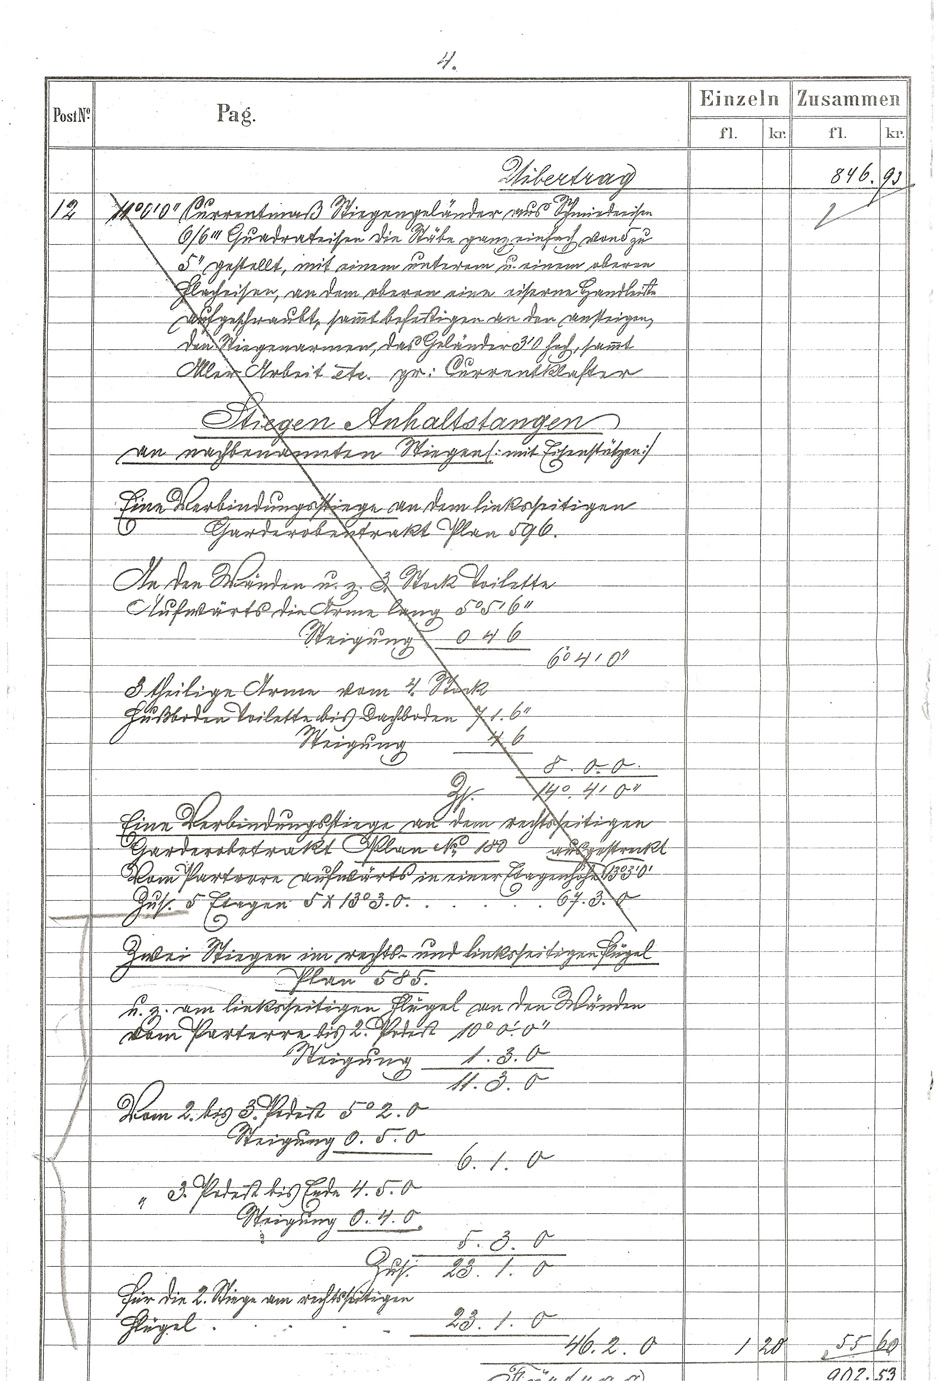 4.
Post Nº Pag. Einzeln Zusammen
fl. kr. fl. kr.
Übertrag 846.93
12 11°0'0" Currentmaß Stiegengeländer aus Schmiedeisen
6/6''' Quadrateisen die Stäbe ganz einfach von 5 zu
5" gestellt, mit einem unterem u. einem oberen
Flacheisen, an dem oberen eine eiserne Handleiste
aufgeschraubt, sammt befestigen an den ansteigen,
den Stiegenarmen, das Geländer 3'0 hoch, sammt
Aller Arbeit etc. pr: Currentklafter
Stiegen Anhaltstangen
an nachbenannten Stiegen /: mit Eisenstützen :/
Eine Verbindungsstiege an dem linksseitigen
Garderobentrakt Plan 596.
An den Wänden u. z. 3. Stock Toilette
Aufwärts die Arme lang 5°5'6"
Steigung 0 4 6
6°4'0"
3 theilige Arme vom 4. Stock
Fußboden Toilette bis Dachboden 7.1.6"
Steigung 4.6
8.0.0.
Zs. 14°.4'0"
Eine Verbindungsstiege an dem rechtsseitigen
Garderobetrakt Plan No 180 ausgestreckt
Vom Parterre aufwärts in einer Etagenhöhe 13°3'0'
Zus. 5 Etagen 5 x 13°3.0. . . . . . 67.3.0
Zwei Stiegen im rechts- und linksseitigen Flügel
Plan 585.
u. z. am linksseitigen Flügel an den Wänden
Vom Parterre bis 2. Podest 10°0'-0"
Steigung 1.3.0
11.3.0
Vom 2. bis 3. Podest 5°2.0
Steigung 0.5.0
6.1.0
" 3. Podest bis Ende 4.5.0
Steigung 0.4.0
5.3.0
Zus. 23.1.0
Für die 2. Stiege am rechtsseitigen
Flügel . . . . 23.1.0
46.2.0 1 20 55 60
902.53